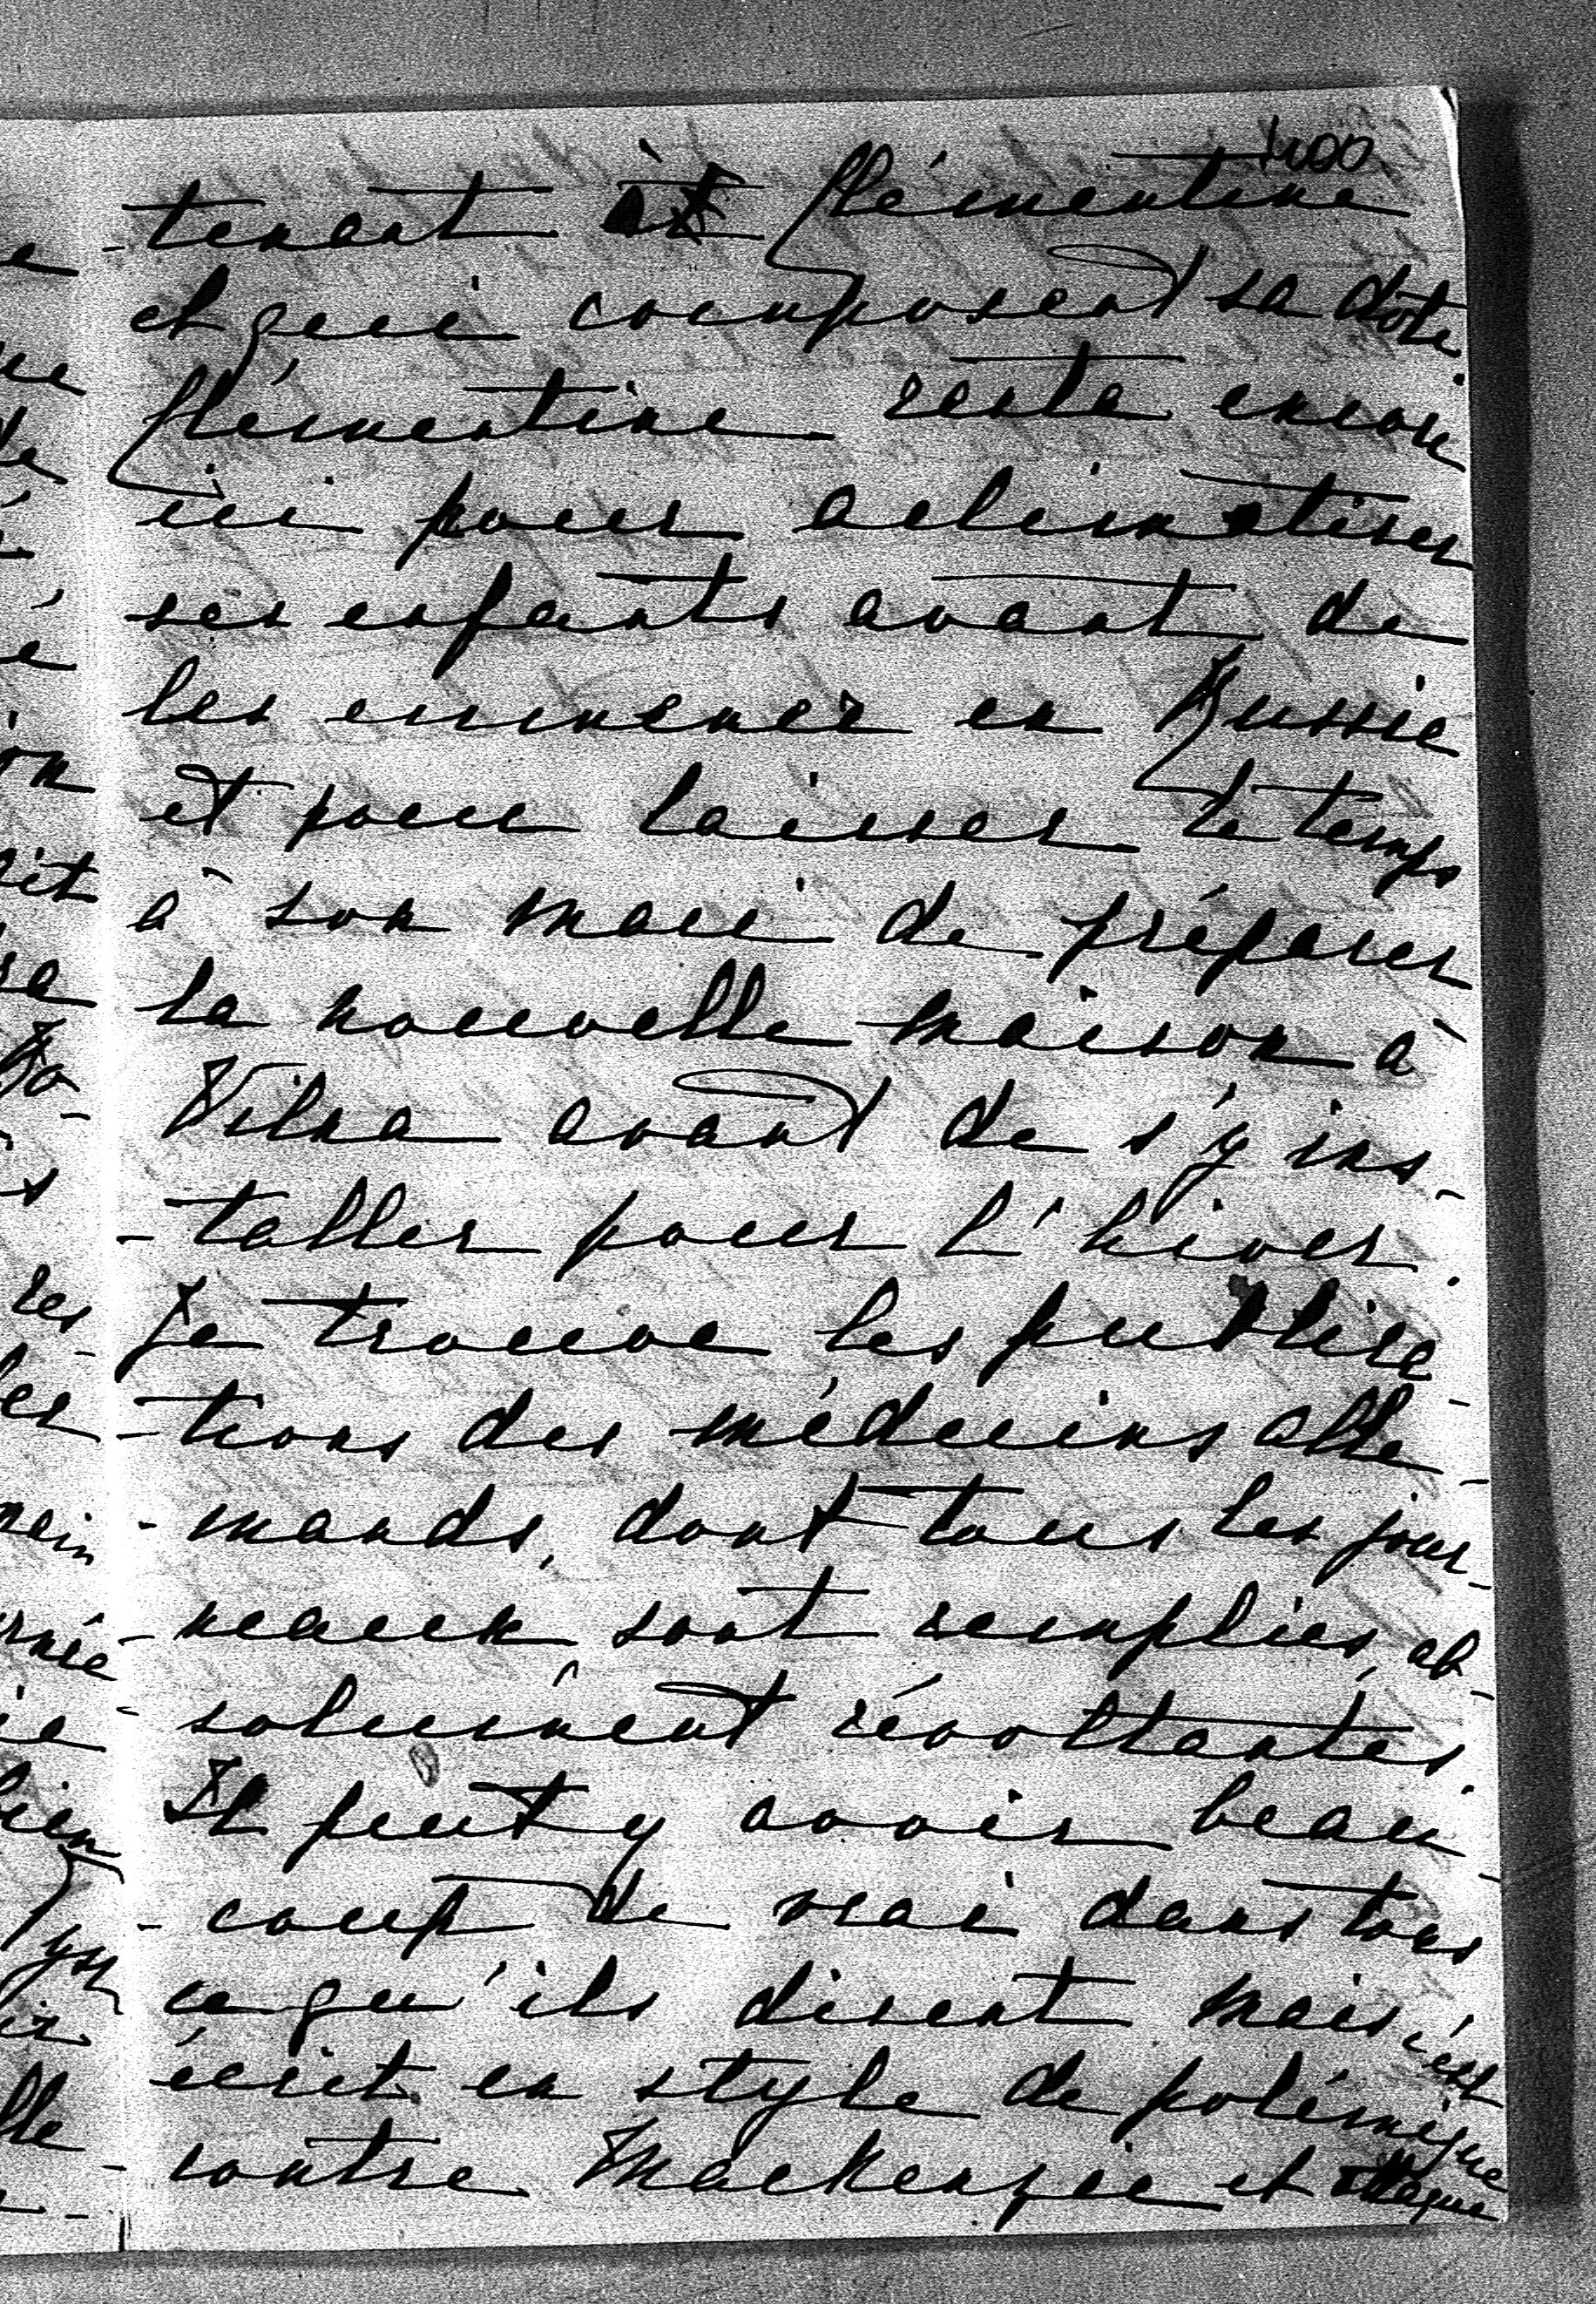 400
-tenant à Clémentine
et qui composent sa dote.
Clémentine reste encore
ici pour aclimatiser
ses enfants avant de
les emmener en Russie
et pour laisser le temps
à son mari de préparer
la nouvelle maison à
Vilna avant de s'y ins-
-taller pour l'hiver.
Je trouve les publica-
-tions des médecins alle-
-mands, dont tous les jour-
-neaux sont remplies, ab-
-solument révoltantes.
Il peut y avoir beau-
-coup de vrai dans tous
ce qu'ils disent mais c'est
écrit en style de polémique
contre Mackenzie et attaque